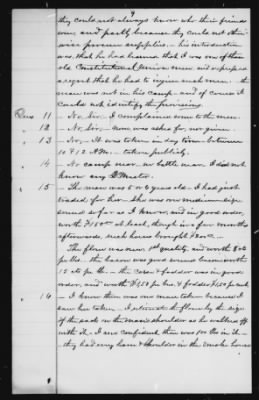 9
they could not always know who their friends
were, and partly because they could not other-
wise procure supplies. - his introduction
was that he had learned that I was one of those
old Constitutional Union men and expressed
a regret that he had to injure such men - the
man was not in his camp - and of course I
could not identify the provisions
Ques 11 - No, Sir, I complained some to the men.
" 12 - No, Sir, - none was asked for nor given.
" 13 - No, - It was taken in day time - between
10 & 12 A.M. - taken publicly.
" 14 - No camp near, no battle near, I did not
know any Q. Master.
" 15 - The mare was 5 or 6 years old - I had just
traded for her - she was over medium size
sound as far as I know, and in good order,
worth $150 at least, though in a few months
afterwards such horses brought $200.
The flour was new 1st quality and worth 8 cts
per lb. - the bacon was good sound bacon worth
15 cts per lb. - the corn & fodder was in good
order, and worth $1.50 per bu. & fodder $1.50 per
" 16 - I know there was one mare taken because I
saw her taken. I estimated the flour by the size
of the sack on the man's shoulder as he walked off
with it - I am confident there was 100 lbs in it -
- they had every ham & shoulder in the smoke house